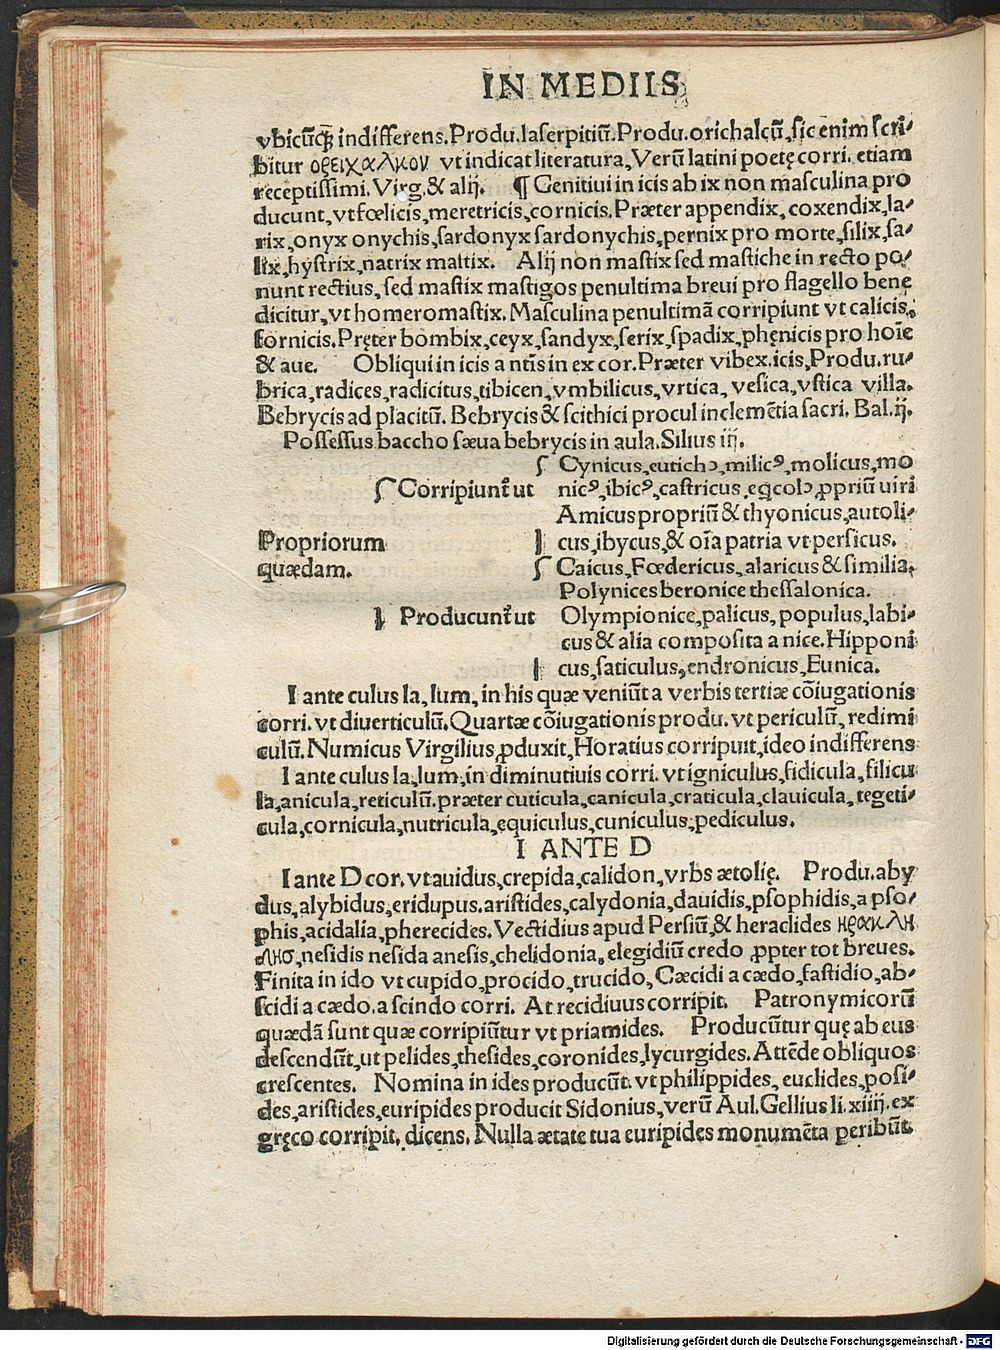 IN MEDIIS
vbicūqꝫ indifferens. Produ. laserpitiū. Produ. orichalcū, sic enim scri-
bitur ορειχαλκον vt indicat literatura, Verū latini poetę corri. etiam
receptissimi. Virg. & alij. ¶ Genitiui in icis ab ix non masculina pro
ducunt, vt fœlicis, meretricis, cornicis. Præter appendix, coxendix, la-
rix, onyx onychis, sardonyx sardonychis, pernix pro morte, silix, sa-
lix, hystrix, natrix mastix. Alij non mastix sed mastiche in recto po-
nunt rectius, sed mastix mastigos penultima breui pro flagello bene
dicitur, vt homeromastix. Masculina penultimā corripiunt vt calicis,
fornicis. Pręter bombix, ceyx, sandyx, serix, spadix, phęnicis pro hoīe
& aue. Obliqui in icis a ntis in ex cor. Præter vibex. icis, Produ. ru-
brica, radices, radicitus, tibicen, vmbilicus, vrtica, vesica, vstica villa.
Bebrycis ad placitū. Bebrycis & scithici procul inclemētia sacri. Bal. ij.
Possessus baccho sæua bebrycis in aula. Silius iij.
Cynicus, euticho, milicꝰ, molicus, mo
Corripiunt̃ ut nicꝰ, ibicꝰ, castricus, eq̄colɔ, ꝓpriū uiri
Amicus propriū & thyonicus, autoli-
Propriorum cus, ibycus, & oīa patria vt persicus.
quædam. Caicus, Fœdericus, alaricus & similia,
Polynices beronice thessalonica.
Producunt̃ ut Olympionice, palicus, populus, labi-
cus & alia composita a nice. Hipponi
cus, saticulus, endronicus, Eunica.
I ante culus la, lum, in his quæ veniūt a verbis tertiæ cōiugationis
corri. vt diuerticulū. Quartæ cōiugationis produ. vt periculū, redimi
culū. Numicus Virgilius ꝓduxit, Horatius corripuit, ideo indifferens
I ante culus la, lum, in diminutiuis corri. vt igniculus, fidicula, filicu
la, anicula, reticulū. præter cuticula, canicula, craticula, clauicula, tegeti-
cula, cornicula, nutricula, equiculus, cuniculus, pediculus.
I ANTE D
I ante D cor. vt auidus, crepida, calidon, vrbs ætolię. Produ. aby
dus, alybidus, eridupus. aristides, calydonia, dauidis, psophidis, a pso-
phis, acidalia, pherecides. Vectidius apud Persiū, & heraclides ηρακλη
λησ, nesidis nesida anesis, chelidonia, elegidiū credo ꝓpter tot breues.
Finita in ido vt cupido, procido, trucido, Cæcidi a cædo, fastidio, ab-
scidi a cædo. a scindo corri. At recidiuus corripit. Patronymicorū
quædā sunt quæ corripiūtur vt priamides. Producūtur quę ab eus
descendūt, ut pelides, thesides, coronides, lycurgides. Attēde obliquos
crescentes. Nomina in ides producūt. vt philippides, euclides, posi-
des, aristides, euripides producit Sidonius, verū Aul. Gellius li. xiiij. ex
gręco corripit, dicens. Nulla ætate tua euripides monumēta peribūt
Digitalisierung gefördert durch die Deutsche Forschungsgemeinschaft - DFG